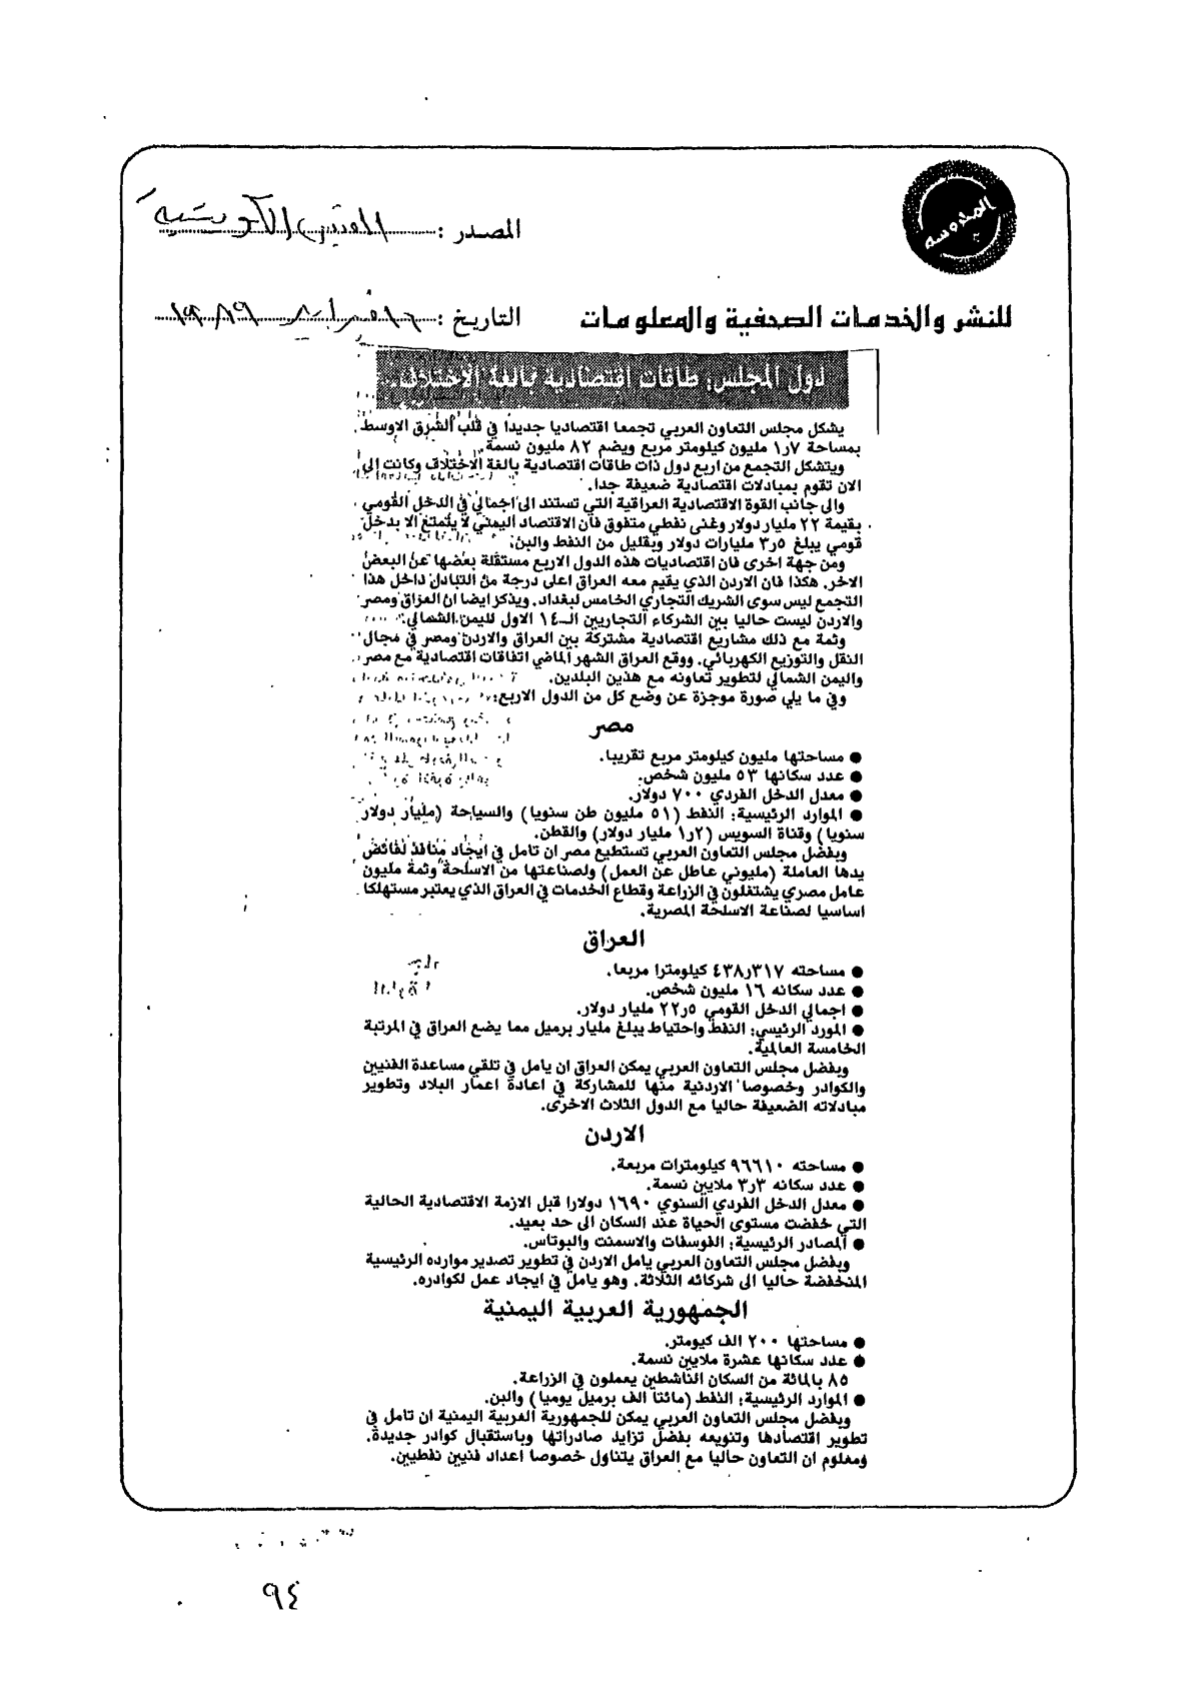 المدوسه
المصدر : القبس الكويتية
للنشر والخدمات الصحفية والمعلومات
التاريخ : ١٦ فبراير ١٩٨٩
دول المجلس: طاقات اقتصادية بالغة الاختلاف
يشكل مجلس التعاون العربي تجمعا اقتصاديا جديدا في قلب الشرق الاوسط
بمساحة ٧ر١ مليون كيلومتر مربع ويضم ٨٢ مليون نسمة.
ويتشكل التجمع من اربع دول ذات طاقات اقتصادية بالغة الاختلاف وكانت الى
الان تقوم بمبادلات اقتصادية ضعيفة جدا.
والى جانب القوة الاقتصادية العراقية التي تستند الى اجمالي في الدخل القومي
بقيمة ٢٢ مليار دولار وغنى نفطي متفوق فان الاقتصاد اليمني لا يتمتع الا بدخل
قومي يبلغ ٥ر٣ مليارات دولار وبقليل من النفط والبن.
ومن جهة اخرى فان اقتصاديات هذه الدول الاربع مستقلة بعضها عن البعض
الاخر. هكذا فان الاردن الذي يقيم معه العراق اعلى درجة من التبادل داخل هذا
التجمع ليس سوى الشريك التجاري الخامس لبغداد. ويذكر ايضا ان العراق ومصر
والاردن ليست حاليا بين الشركاء التجاريين الـ١٤ الاول لليمن الشمالي.
وثمة مع ذلك مشاريع اقتصادية مشتركة بين العراق والاردن ومصر في مجال
النقل والتوزيع الكهربائي. ووقع العراق الشهر الماضي اتفاقات اقتصادية مع مصر
واليمن الشمالي لتطوير تعاونه مع هذين البلدين.
وفي ما يلي صورة موجزة عن وضع كل من الدول الاربع:
مصر
● مساحتها مليون كيلومتر مربع تقريبا.
● عدد سكانها ٥٣ مليون شخص.
● معدل الدخل الفردي ٧٠٠ دولار.
● الموارد الرئيسية: النفط (٥١ مليون طن سنويا) والسياحة (مليار دولار
سنويا) وقناة السويس (٢ر١ مليار دولار) والقطن.
وبفضل مجلس التعاون العربي تستطيع مصر ان تامل في ايجاد منافذ لفائض
يدها العاملة (مليوني عاطل عن العمل) ولصناعتها من الاسلحة وثمة مليون
عامل مصري يشتغلون في الزراعة وقطاع الخدمات في العراق الذي يعتبر مستهلكا
اساسيا لصناعة الاسلحة المصرية.
العراق
● مساحته ٣١٧ر٤٣٨ كيلومترا مربعا.
● عدد سكانه ١٦ مليون شخص.
● اجمالي الدخل القومي ٥ر٢٢ مليار دولار.
● المورد الرئيسي: النفط واحتياط يبلغ مليار برميل مما يضع العراق في المرتبة
الخامسة العالمية.
وبفضل مجلس التعاون العربي يمكن العراق ان يامل في تلقي مساعدة الفنيين
والكوادر وخصوصا الاردنية منها للمشاركة في اعادة اعمار البلاد وتطوير
مبادلاته الضعيفة حاليا مع الدول الثلاث الاخرى.
الاردن
● مساحته ٩٦٦١٠ كيلومترات مربعة.
● عدد سكانه ٣ر٣ ملايين نسمة.
● معدل الدخل الفردي السنوي ١٦٩٠ دولارا قبل الازمة الاقتصادية الحالية
التي خفضت مستوى الحياة عند السكان الى حد بعيد.
● المصادر الرئيسية: الفوسفات والاسمنت والبوتاس.
وبفضل مجلس التعاون العربي يامل الاردن في تطوير تصدير موارده الرئيسية
المنخفضة حاليا الى شركائه الثلاثة. وهو يامل في ايجاد عمل لكوادره.
الجمهورية العربية اليمنية
● مساحتها ٢٠٠ الف كيومتر.
● عدد سكانها عشرة ملايين نسمة.
٨٥ بالمائة من السكان الناشطين يعملون في الزراعة.
● الموارد الرئيسية: النفط (مائتا الف برميل يوميا) والبن.
وبفضل مجلس التعاون العربي يمكن للجمهورية العربية اليمنية ان تامل في
تطوير اقتصادها وتنويعه بفضل تزايد صادراتها وباستقبال كوادر جديدة.
ومعلوم ان التعاون حاليا مع العراق يتناول خصوصا اعداد فنيين نفطيين.
٩٤